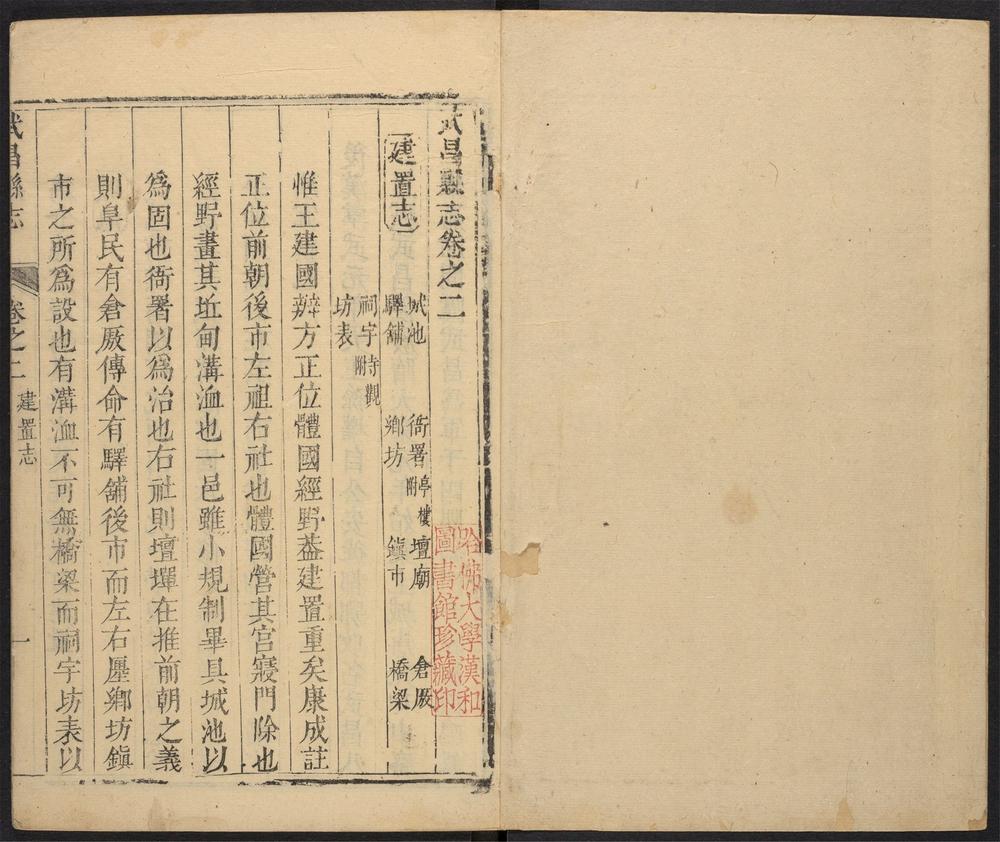 武昌縣志卷之二
建置志
城池 衙署附亭樓 壇廟 倉厫
驛舖 鄉坊 鎮市 橋梁
祠宇附寺觀
坊表
惟王建國辨方正位體國經野葢建置重矣康成註
正位前朝後市左祖右社也體國營其宫寢門除也
經野畫其坵甸溝洫也一邑雖小規制畢具城池以
為固也衙署以為治也右社則壇墠在推前朝之義
則阜民有倉厫傳命有驛舖後市而左右廛鄉坊鎮
市之所為設也有溝洫不可無橋梁而祠宇坊表以
武昌縣志 卷之二 建置志 一
哈佛大學漢和
圖書館珍藏印